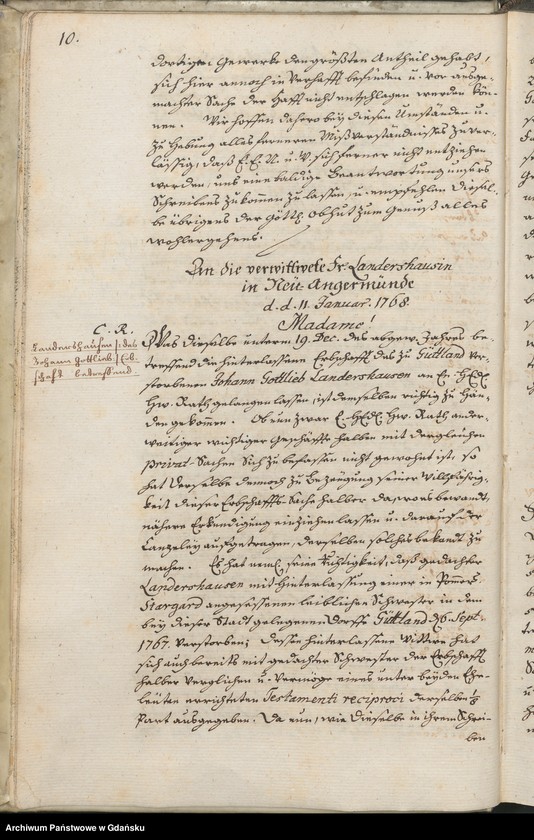 10.
dortigen Gewercke den größten Antheil gehabt,
sich hier annoch in Verhafft befinden u. vor ausge-
machter Sache der Hafft nicht entschlagen werden kön-
nen. Wir hoffen dahero bey diesen Umständen u.
zu Hebung alles ferneren Mißverständnisses zuver-
lässig, daß E. E. R. u. W. sich ferner nicht entziehen
werden, uns eine baldige Beantwortung unsers
Schreibens zukommen zu lassen, u. empfehlen Diesel-
be übrigens der Göttl. Obhut zum Genuß alles
wohlergehens.
An die verwittwete Fr. Landershausin
in Neu-Angermünde
d. d. 11. Januar. 1768.
Madame!
C. R.
Landershausen des
Johann Gottlieb Erb-
schafft betreffend
Was dieselbe unterm 19. Dec. des abgew. Jahres be-
treffend die hinterlassene Erbschafft des zu Güttland ver-
storbenen Johann Gottlieb Landershausen an En. HEDL.
Hw. Rath gelangen lassen, ist demselben richtig zu Hän-
den gekommen. Ob nun zwar E. HEDL. Hw. Rath ander-
weitiger wichtiger Geschäffte halben mit dergleichen
privat-Sachen sich zu befassen nicht gewohnt ist, so
hat derselbe dennoch zu Bezeugung seiner Willfährig-
keit dieser Erbschaffts-Sache halber
nähere Erkundigung einziehen lassen u. darauf der
Canzeley aufgetragen, derselben solches bekandt zu
machen. Es hat neml. seine Richtigkeit, daß gedachter
Landershausen mit Hinterlassung einer in Pommer.
Stargard angesessenen leiblichen Schwester in dem
bey dieser Stadt gelegenen Dorffe Güttland 6. Sept.
1767. verstorben; dessen hinterlassene Wittwe hat
sich auch bereits mit gedachter Schwester der Erbschafft
halber verglichen u. vermöge eines unter beyden Ehe-
leuten errichteten Testamenti reciproci derselben
Part ausgegeben. Da nun, wie dieselbe in ihrem Schrei-
ben
Archiwum Państwowe w Gdańsku